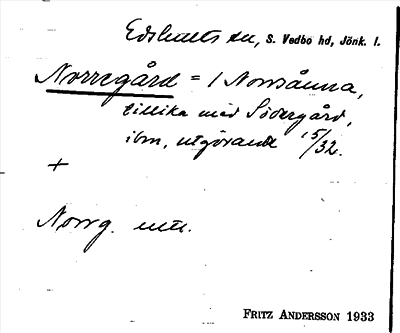 Edshults sn, S. Vedbo hd, Jönk. l.
Norregård = 1 Norrsånna,
tillika med Södergård,
ibm, utgörande 15/32.
+
Norrg. utt.
FRITZ ANDERSSON 1933